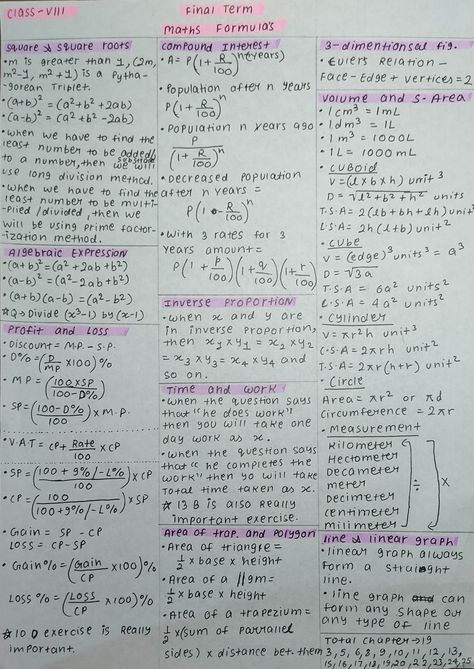 Class-VIII
Final Term
Maths Formula's
square & square roots
• m is greater than 1, (2m,
m²-1, m²+1) is a Pytha-
gorean Triplet.
• (a+b)² = (a²+b²+2ab)
• (a-b)² = (a²+b²-2ab)
• when we have to find the
least number to be added/
substract
to a number, then we will
use long division method.
• when we have to find the
least number to be multi-
plied/divided, then we
will be using prime factor-
ization method.
Algebraic Expression
• (a+b)² = (a²+2ab+b²)
• (a-b)² = (a²-2ab+b²)
• (a+b)(a-b) = (a²-b²)
☆Q→ Divide (x³-1) by (x-1)
Profit and Loss
• Discount = M.P. - S.P.
• D% = (D/MP ×100)%
• MP = (100×SP/100-D%)
• SP = (100-D%/100) × M.P.
• V.A.T = CP + Rate/100 × CP
• SP = (100+g%/-L%/100) × CP
• CP = (100/100+g%/-L%) × SP
• Gain = SP - CP
LOSS = CP - SP
• Gain% = (Gain/CP ×100)%
LOSS% = (LOSS/CP ×100)%
☆ 10 D exercise is Really
important.
Compound Interest
• A = P(1+R/100)ⁿ(years)
• Population after n years
P(1+R/100)ⁿ
• Population n years ago
P/(1+R/100)ⁿ
• Decreased population
after n years =
P(1-R/100)ⁿ
• With 3 rates for 3
years amount =
P(1+p/100)(1+q/100)(1+r/100)
Inverse Proportion
• when x and y are
in inverse proportion,
then x₁y₁ = x₂y₂
= x₃y₃ = x₄y₄ and
so on.
Time and work
• when the question says
that "he does work"
then you will take one
day work as x.
• when the question says
that "he completes the
work" then yo will take
total time taken as x.
☆ 13 B is also Really
important exercise.
Area of trap. and Polygon
• Area of triangle =
1/2 × base × height
• Area of a ||gm =
1/2 × base × height
• Area of a trapezium =
1/2 × (sum of parrallel
sides) × distance bet. them
3-dimentionsal fig.
• Euler's Relation —
Face-Edge+vertices=2
Volume and S.Area
• 1cm³ = 1mL
• 1dm³ = 1L
• 1m³ = 1000L
• 1L = 1000mL
• cuboid
V = (l×b×h) unit³
D = √l²+b²+h² units
T.S.A = 2(lb+bh+lh) unit²
L.S.A = 2h(l+b) unit²
• cube
V = (edge)³ units³ = a³
D = √3a
T.S.A = 6a² units²
L.S.A = 4a² units²
• Cylinder
V = πr²h unit³
C.S.A = 2πrh unit²
T.S.A = 2πr(h+r) unit²
• Circle
Area = πr² or πd
Circumference = 2πr
• Measurement
kilometer
Hectometer
Decameter
meter
Decimeter
centimeter
millimeter
÷
×
line & linear graph
• linear graph always
form a straight
line.
• line graph can
form any shape or
any type of line
Total chapter → 19
3, 5, 6, 8, 9, 10, 11, 12, 13,
15, 16, 17, 18, 19, 20, 22, 23, 24, 25